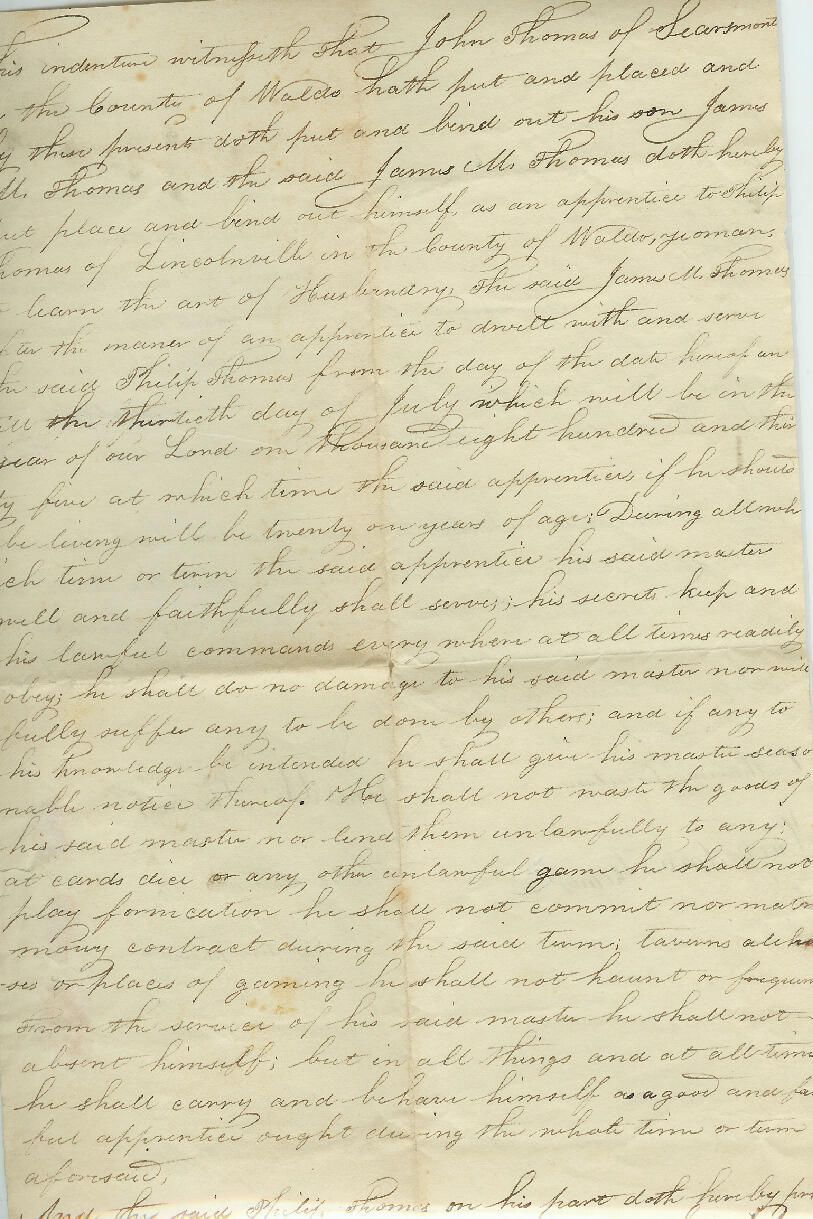 his indenture witnesseth That John Thomas of Searsmont
the County of Waldo hath put and placed and
y these presents doth put and bind out his son James
M. Thomas and the said James M. Thomas doth hereby
ut place and bind out himself, as an apprentice to Philip
homas of Lincolnville in the County of Waldo, yeoman,
learn the art of Husbandry, The said James M. Thomas
fter the maner of an apprentice to dwell with and serve
he said Philip Thomas from the day of the date hereof un
ill the thirtieth day of July which will be in the
year of our Lord one thousand eight hundred and thir
ty five at which time the said apprentice, if he should
be living will be twenty one years of age; During all wh
ich time or term the said apprentice his said master
well and faithfully shall serve; his secrets keep and
his lawful commands every where at all times readily
obey; he shall do no damage to his said master nor will
fully suffer any to be done by others; and if any to
his knowledge be intended he shall give his master seaso
nable notice thereof. He shall not waste the goods of
his said master nor lend them unlawfully to any;
at cards dice or any other unlawful game he shall not
play fornication he shall not commit nor matri
mony contract during the said term; taverns aleho
ses or places of gaming he shall not haunt or frequen
From the service of his said master he shall not
absent himself; but in all things and at all time
he shall carry and behave himself as a good and fai
ful apprentice ought during the whole time or term
aforesaid.
And the said Philip Thomas on his part doth hereby pr